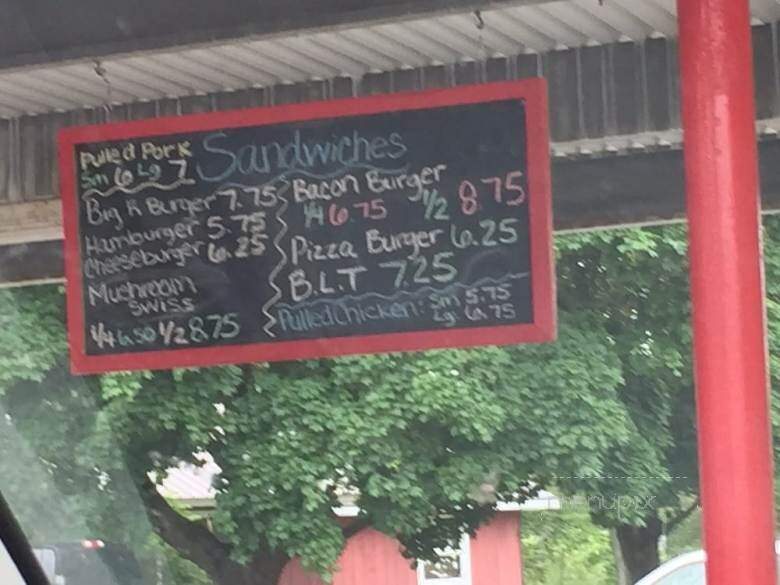 Pulled Pork
Sm 6 Lg 7
Sandwiches
Big R Burger 7.75
Hamburger 5.75
Cheeseburger 6.25
Mushroom
Swiss
1/4 6.50 1/2 8.75
Bacon Burger
1/4 6.75 1/2 8.75
Pizza Burger 6.25
B.L.T 7.25
Pulled Chicken: Sm 5.75
Lg: 6.75
menupix